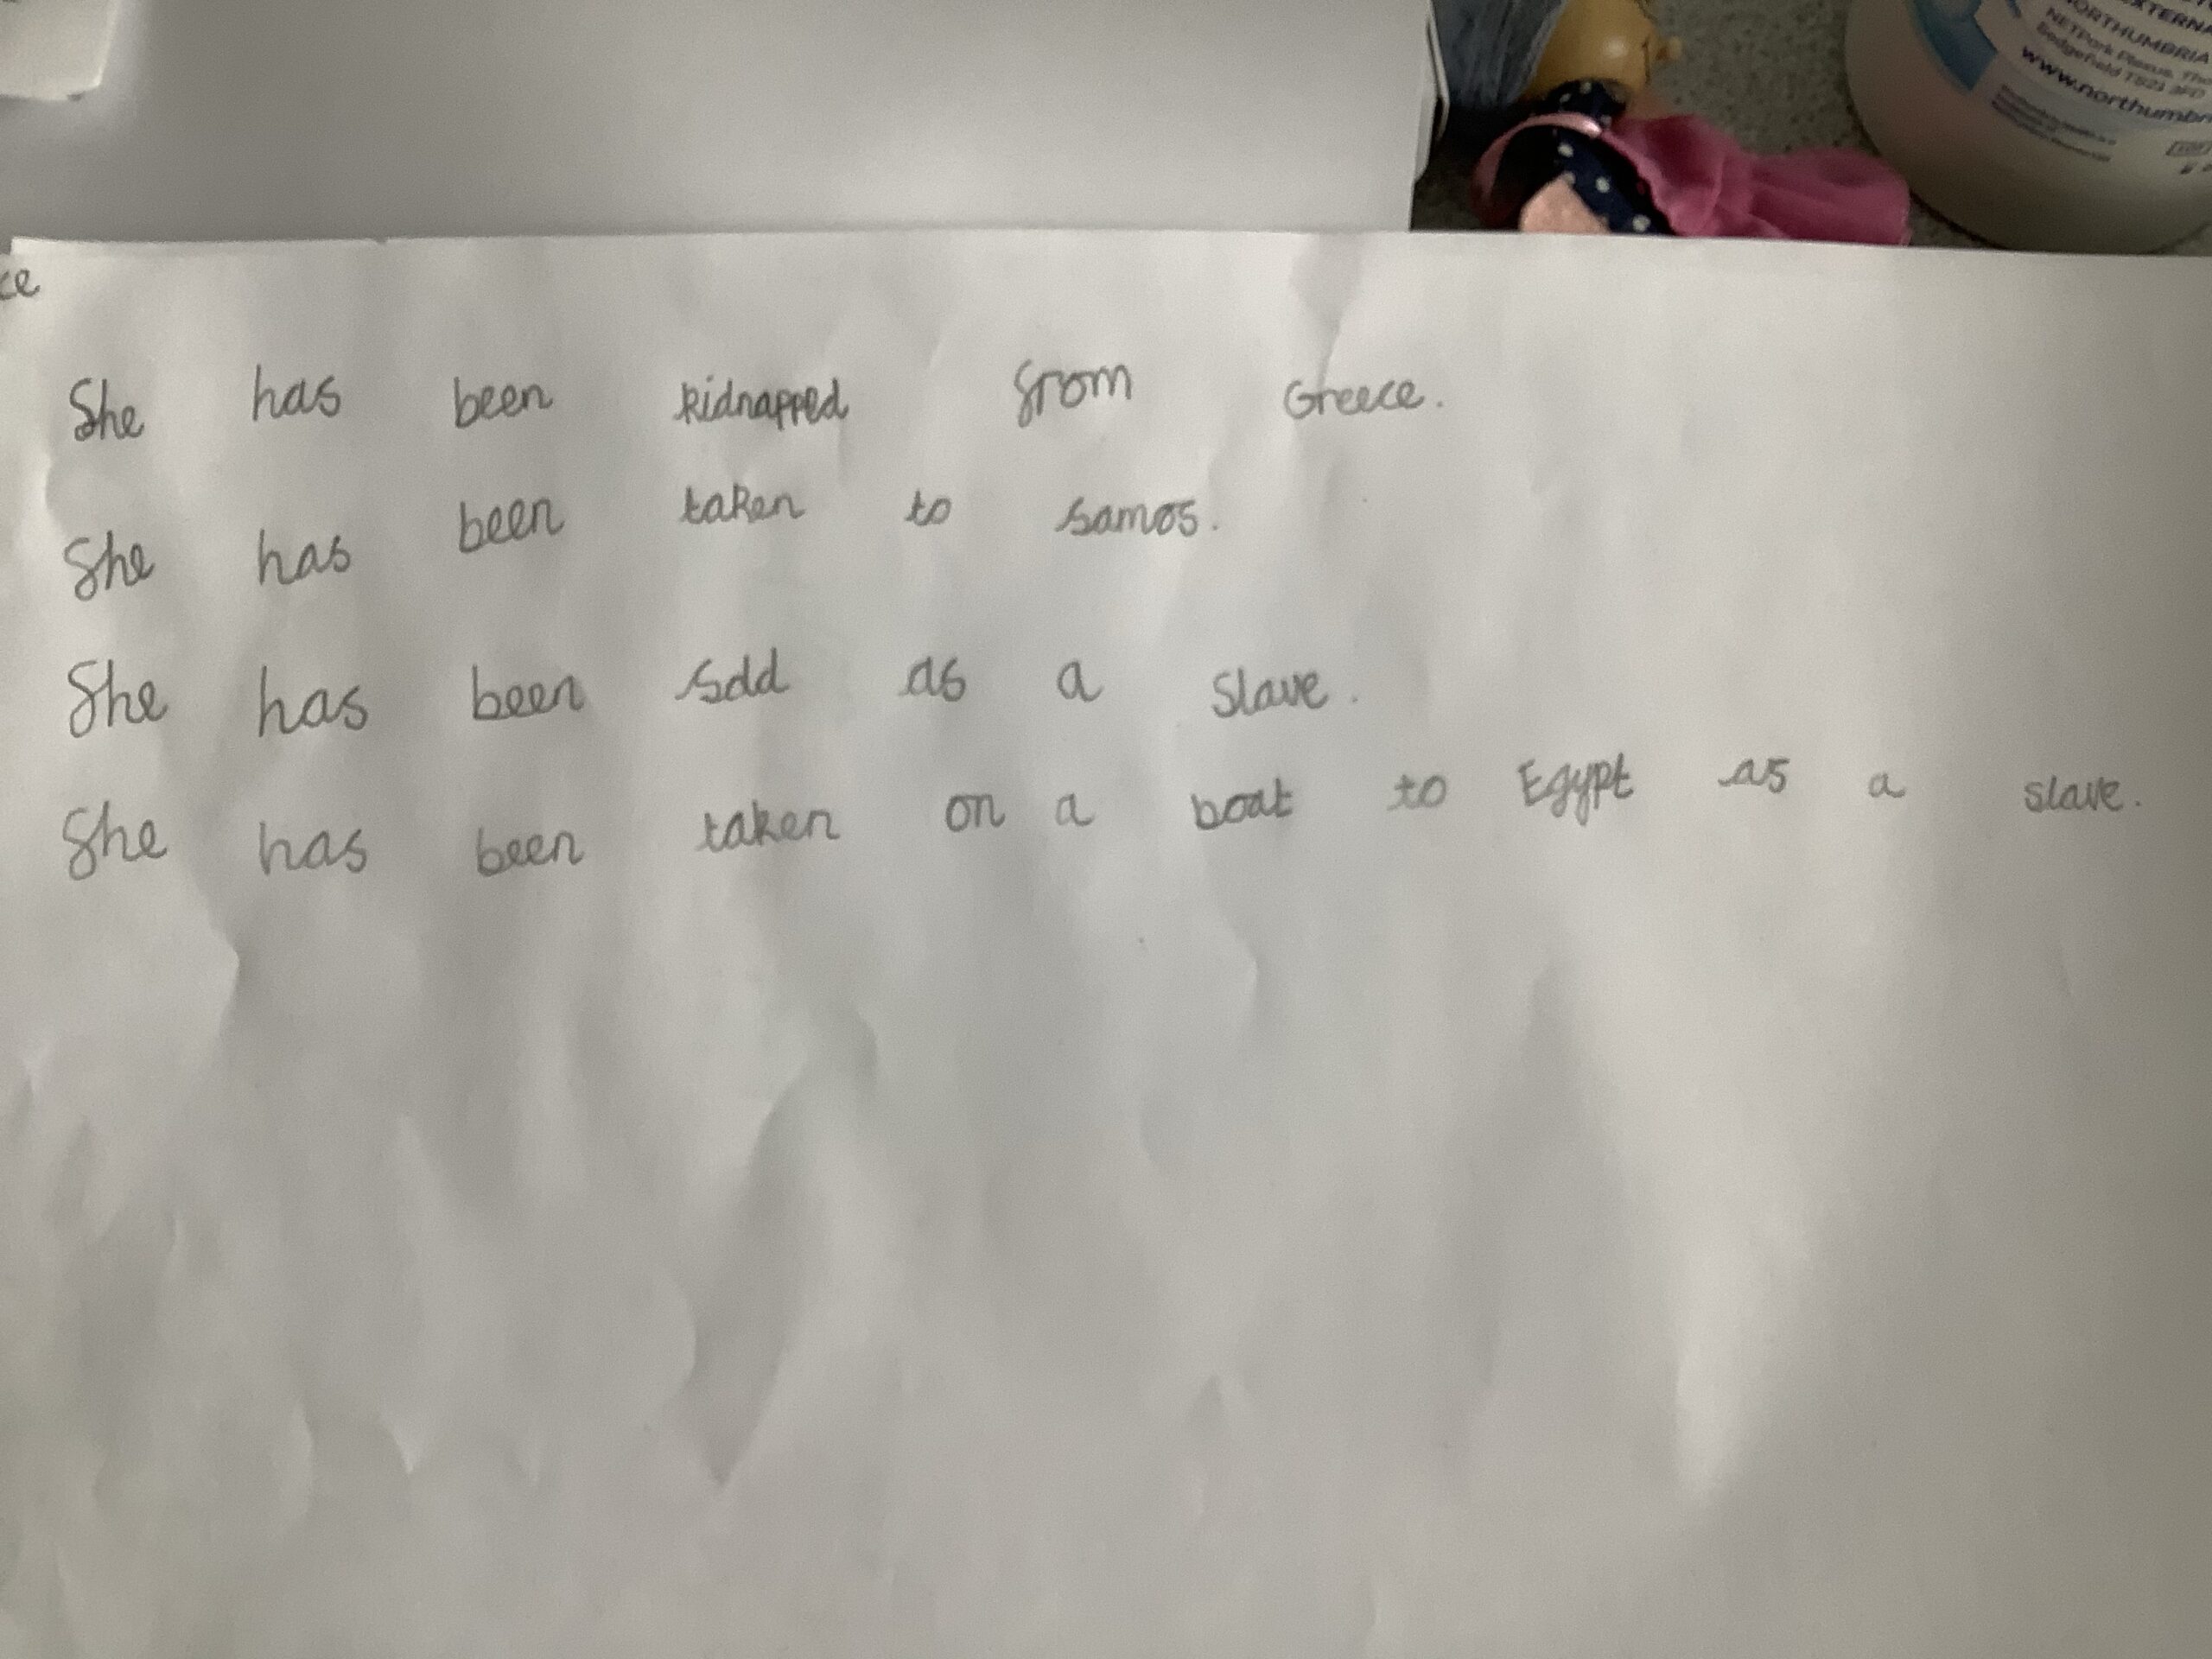 EXTERNA
NORTHUMBRIA
NETPark Plexus, Tho
Sedgefield TS21 3FD
www.northumbri
ce
She has been kidnapped from Greece.
She has been taken to samos.
She has been sold as a slave.
She has been taken on a boat to Egypt as a slave.